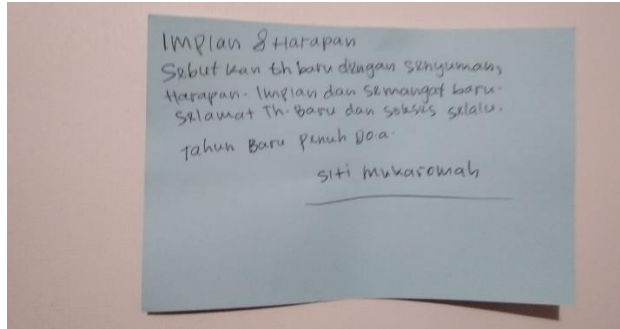 Implan & Harapan
Sebut kan th baru dengan senyuman,
Harapan. Impian dan semangat baru.
Selamat Th. Baru dan sukses selalu.
Tahun Baru penuh Do.a.
Siti Mukaromah